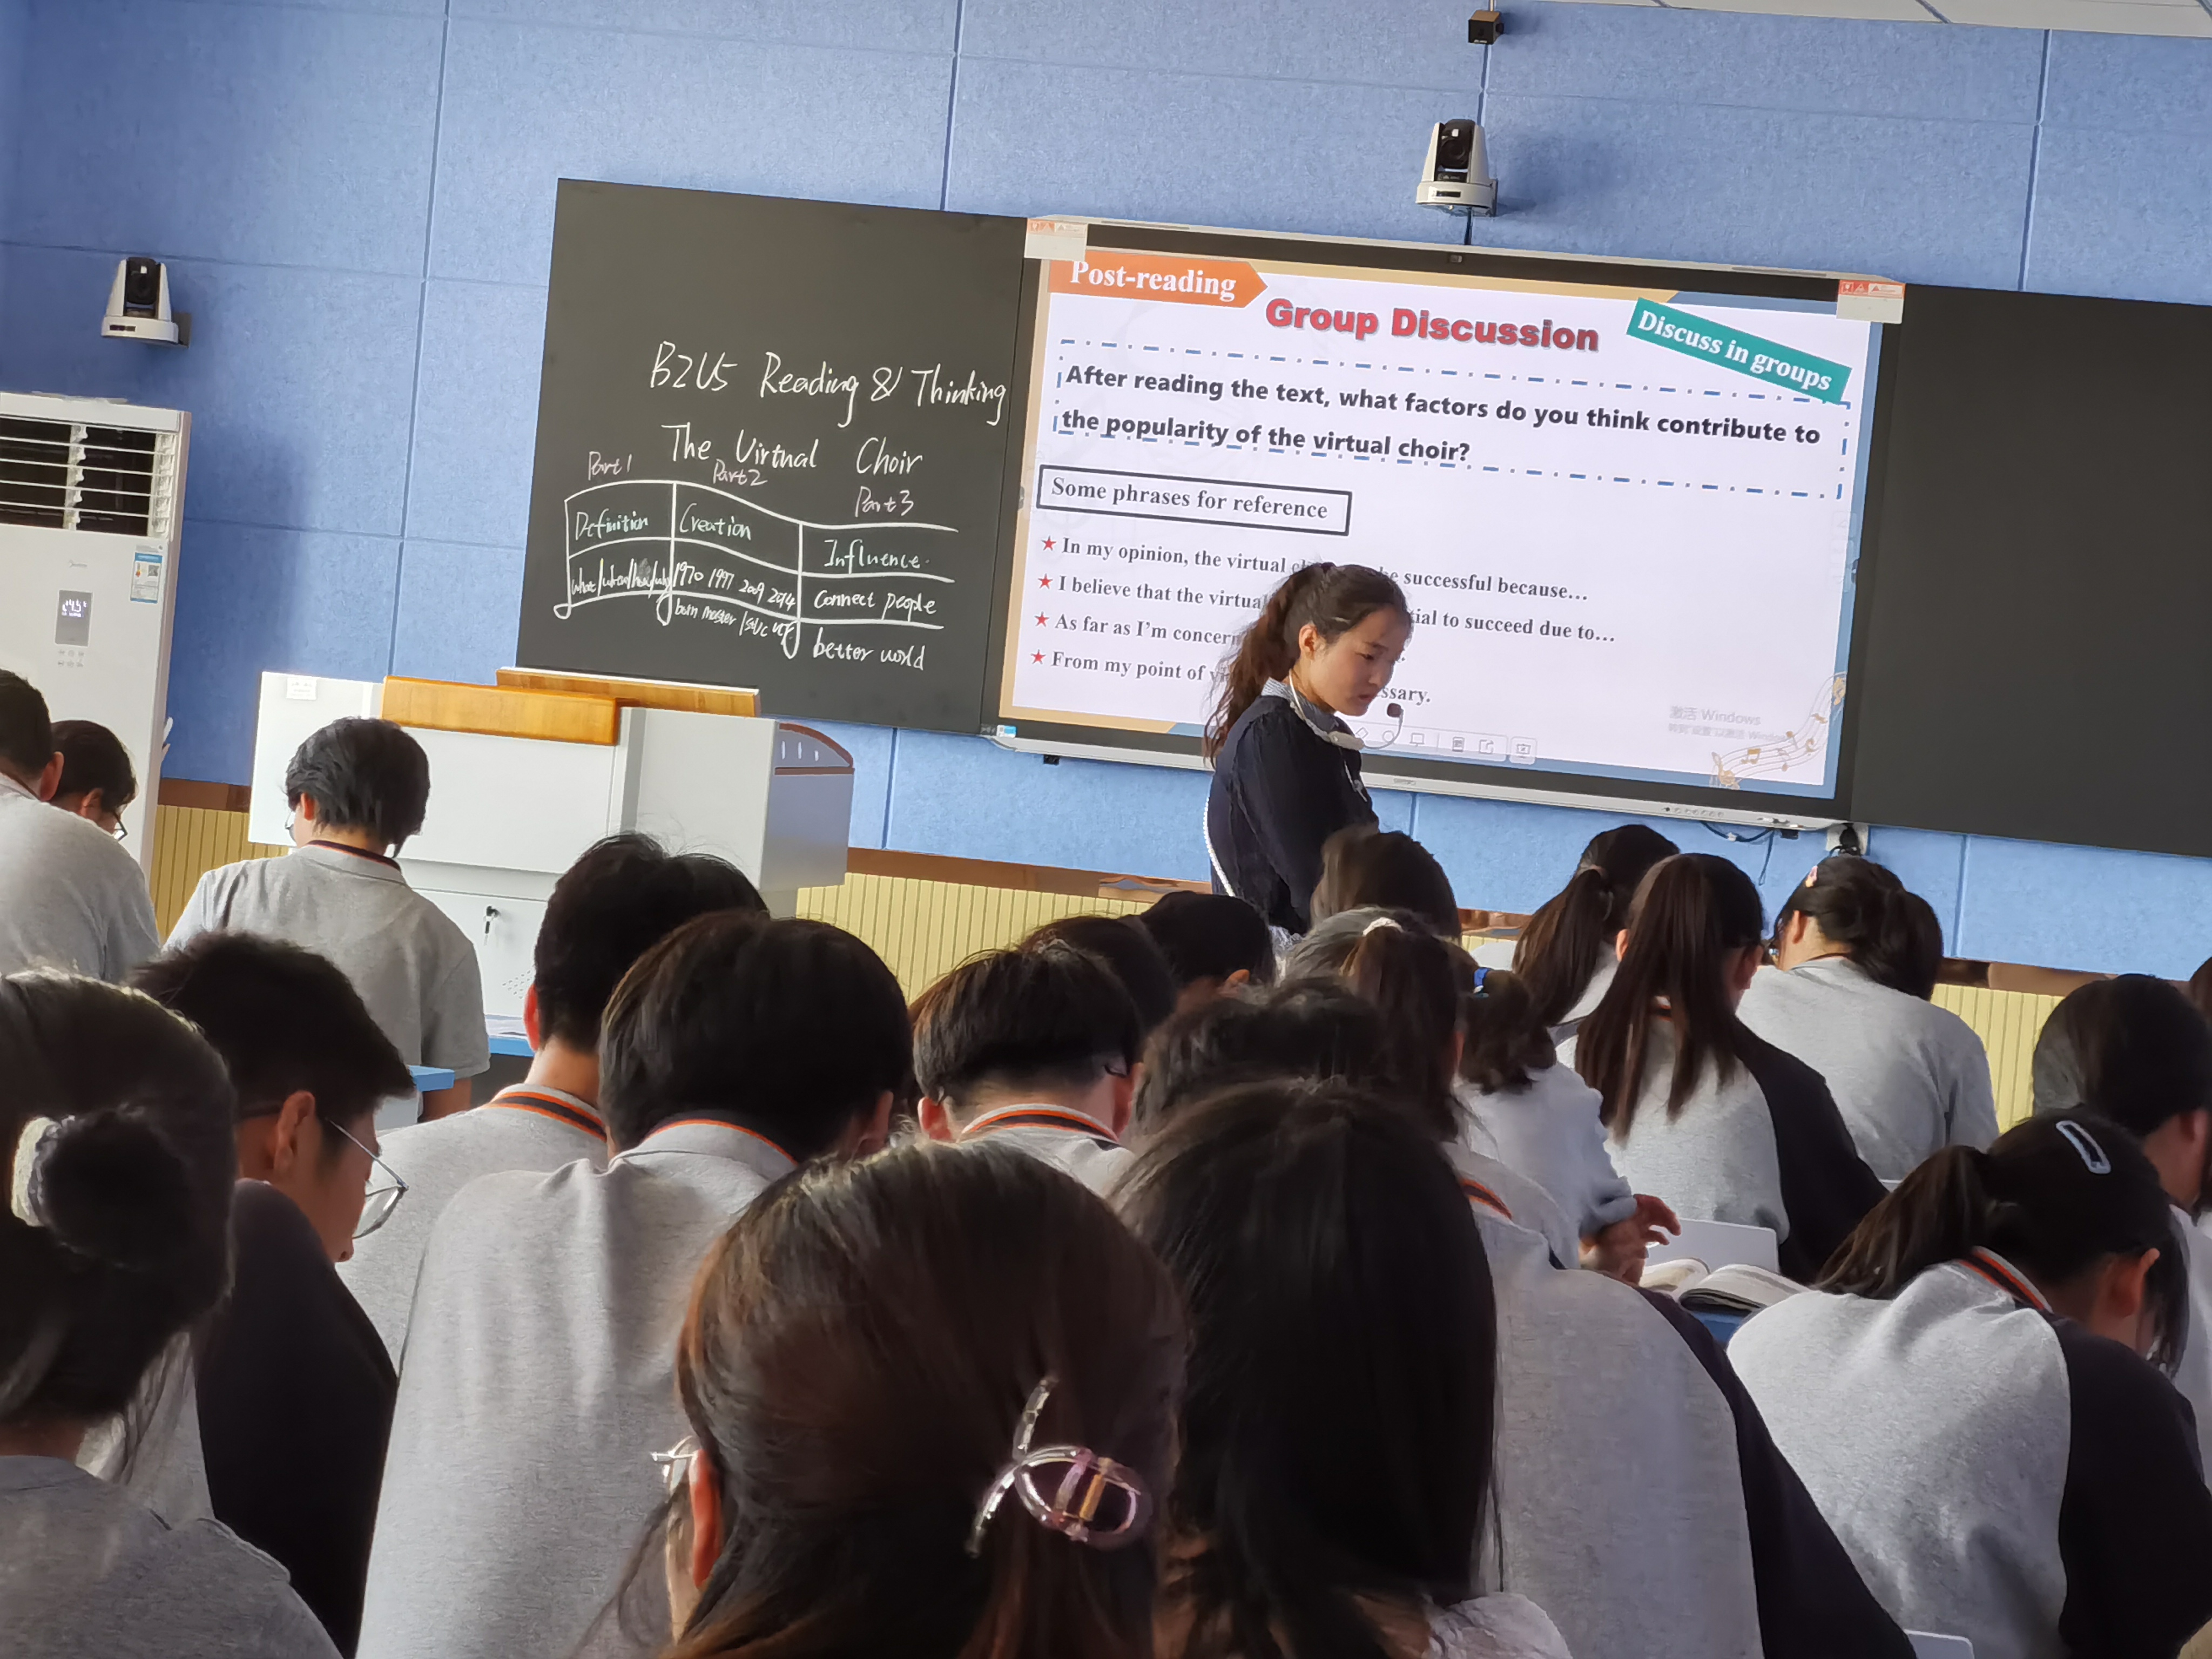 B2U5 Reading & Thinking
The Virtual Choir
Part1
Part2
Part3
Definition
Creation
Influence
1970 1997 2009 2014
connect people
born master
better world
Post-reading
Group Discussion
Discuss in groups
After reading the text, what factors do you think contribute to
the popularity of the virtual choir?
Some phrases for reference
★ In my opinion, the virtual successful because...
★ I believe that the virtual to succeed due to...
★ As far as I'm
★ From my point of
激活 Windows